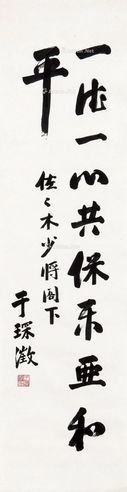 一德一心共保東亜和
平
佐々木少将閣下
于琛澂